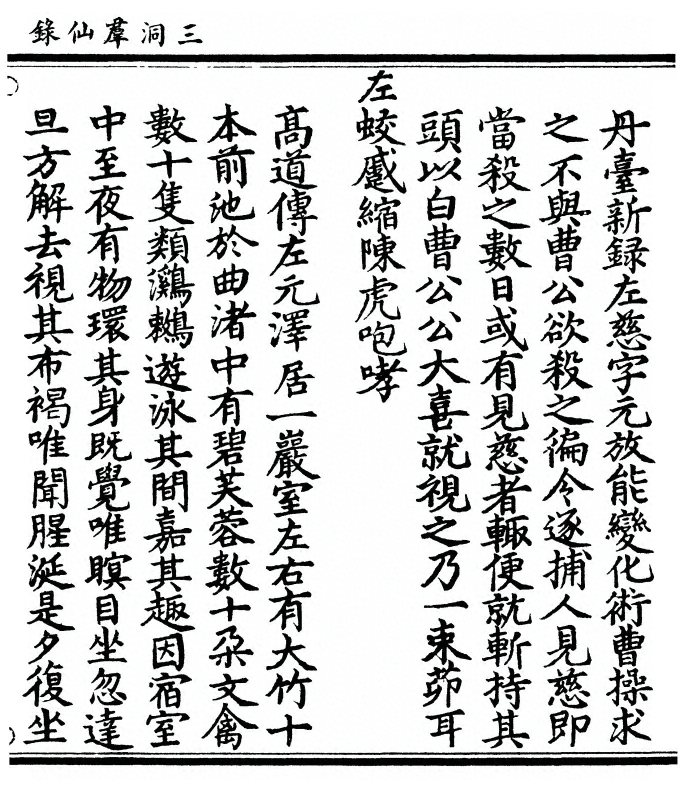 三洞羣仙錄
丹臺新録左慈字元放能變化術曹操求
之不與曹公欲殺之徧令逐捕人見慈即
當殺之數日或有見慈者輙便就斬持其
頭以白曹公公大喜就視之乃一束茆耳
左蛟蹙縮陳虎咆哮
髙道傳左元澤居一巖室左右有大竹十
本前池於曲渚中有碧芙蓉數十朶文禽
數十隻類鸂鶒遊泳其間嘉其趣因宿室
中至夜有物環其身既覺唯瞑目坐忽達
旦方解去視其布褐唯聞腥涎是夕復坐